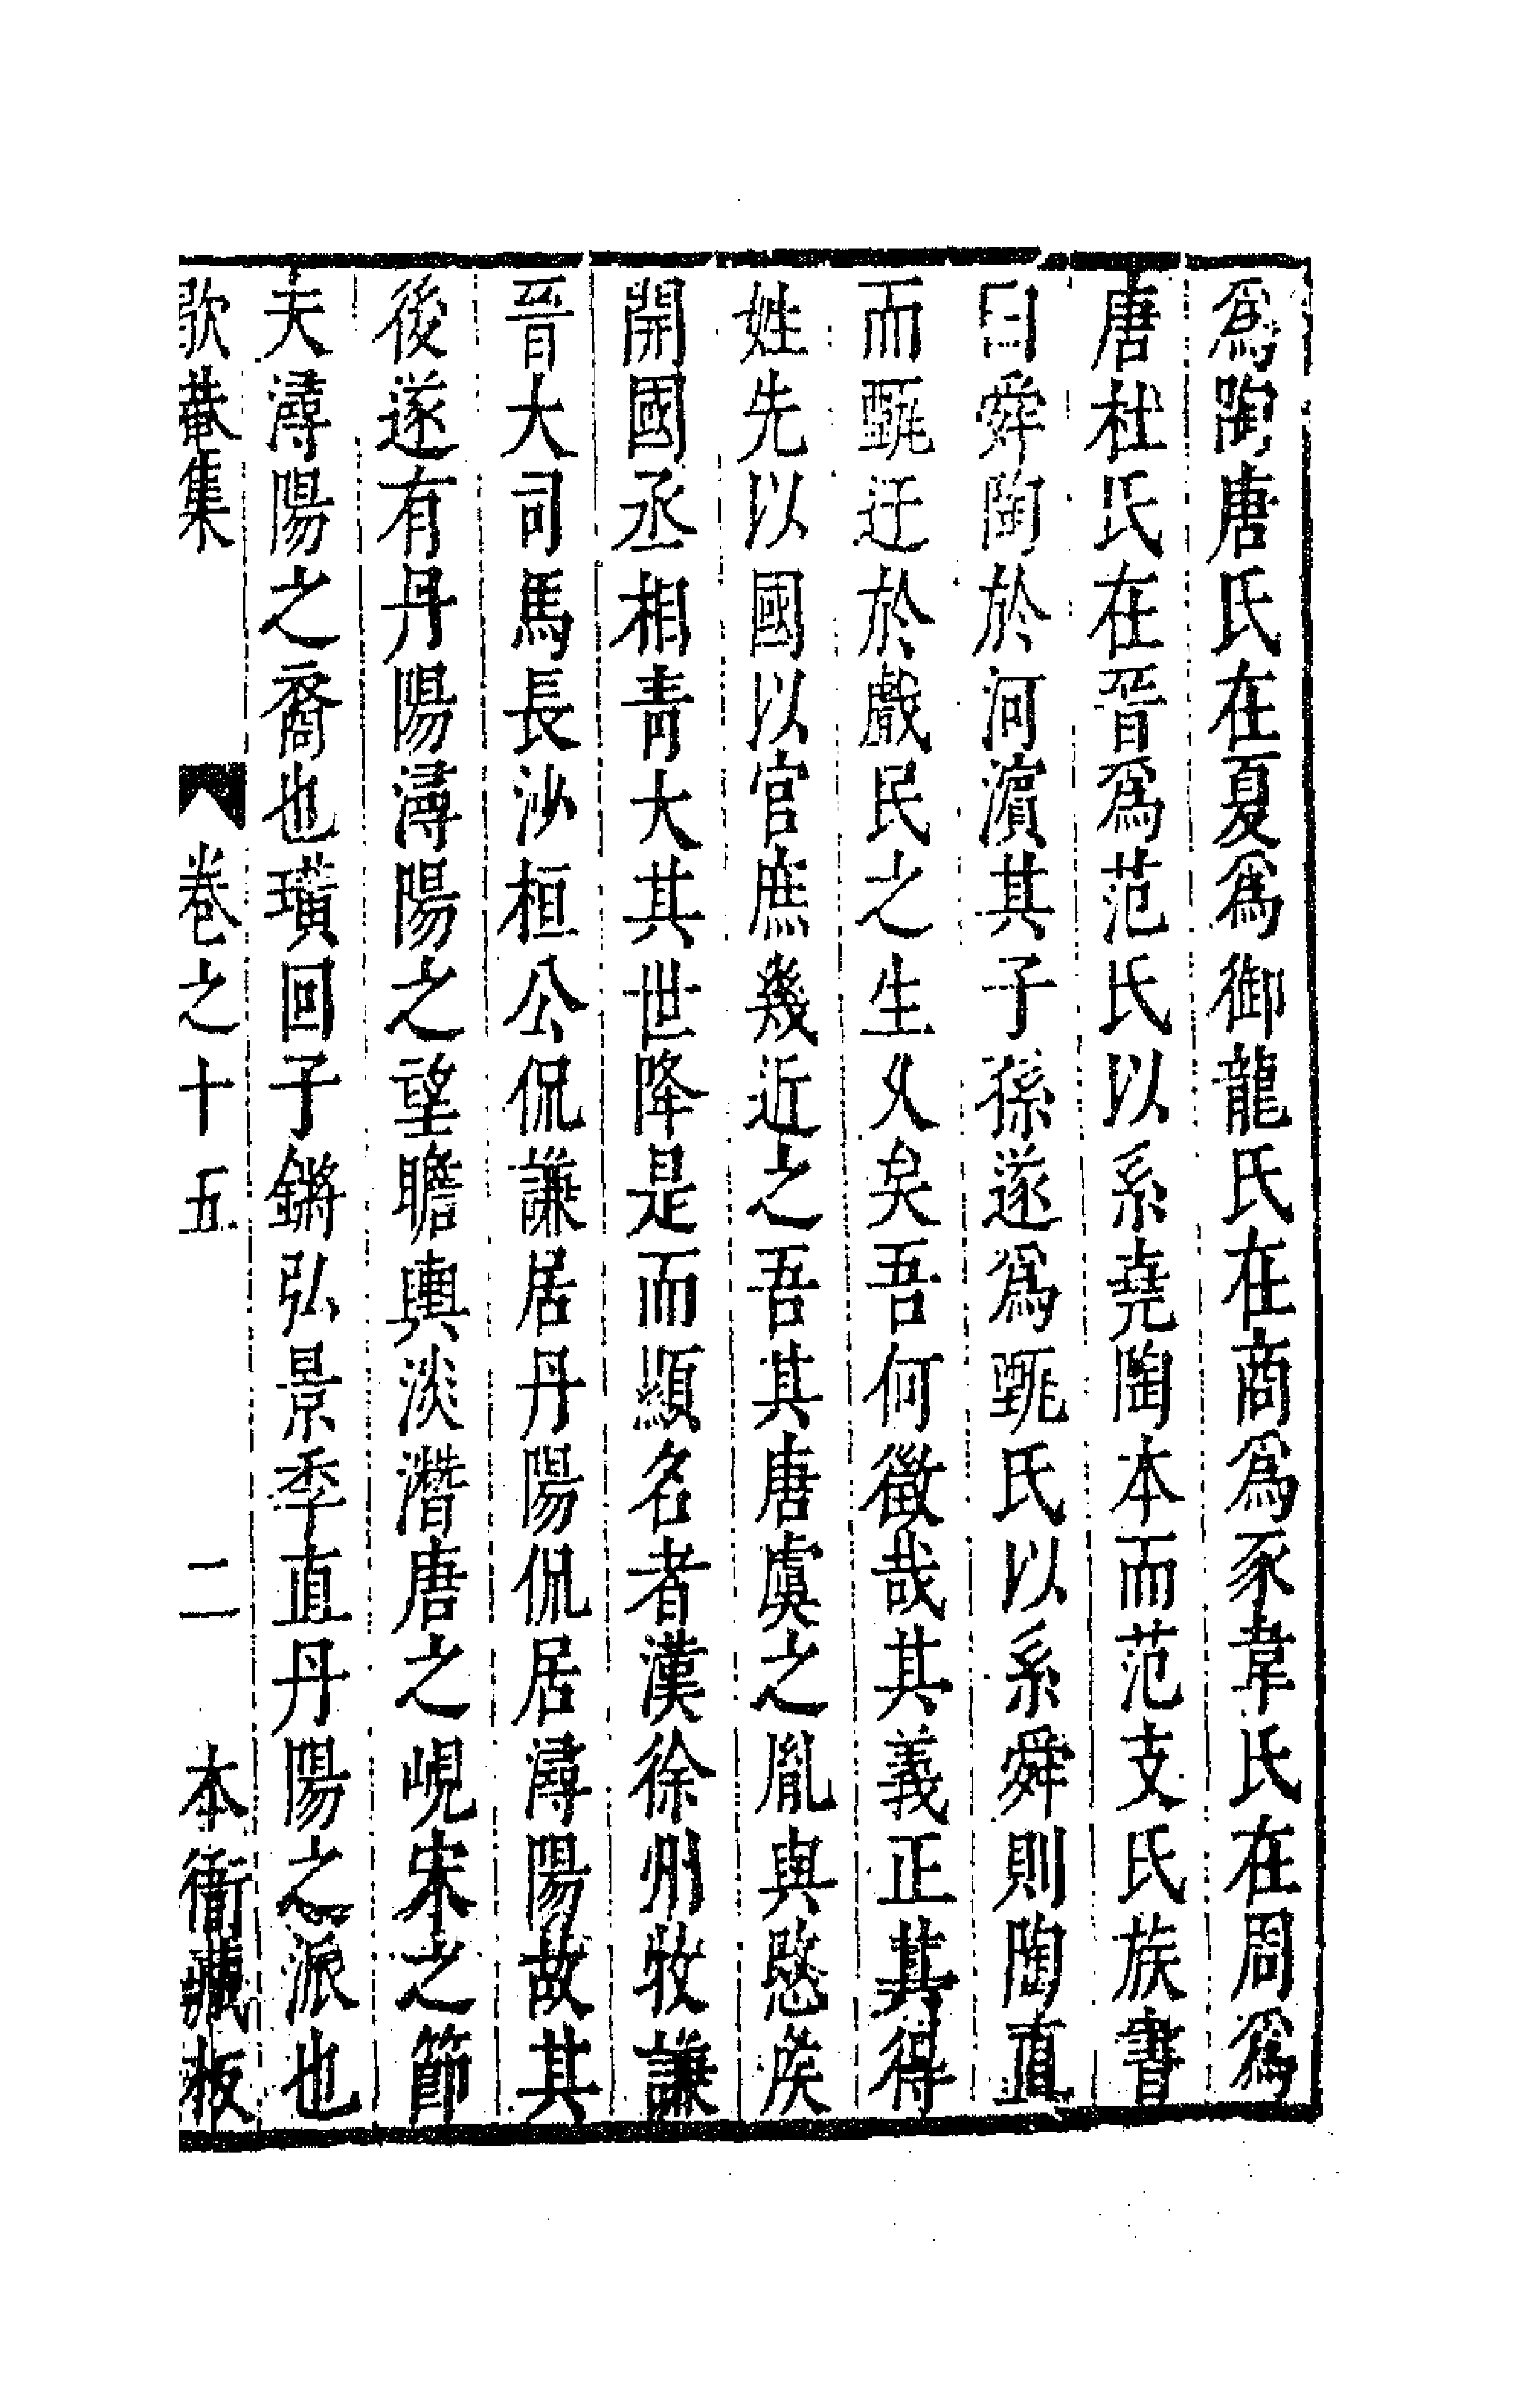 爲陶唐氏在夏爲御龍氏在商爲豕韋氏在周爲
唐杜氏在晉爲范氏以系堯陶本而范支氏族書
曰舜陶於河濵其子孫遂爲甄氏以系舜則陶直
而甄迂於戲民之生乆矣吾何徵哉其義正其得
姓先以國以官庶幾近之吾其唐虞之胤與愍矦
開國丞相青大其世降是而顯名者漢徐州牧謙
晉大司馬長沙桓公侃謙居丹陽侃居潯陽故其
後遂有丹陽潯陽之望瞻輿淡潛唐之峴宋之節
夫潯陽之裔也璜回子鏘弘景季直丹陽之派也
歇菴集　卷之十五　二　本衙藏板